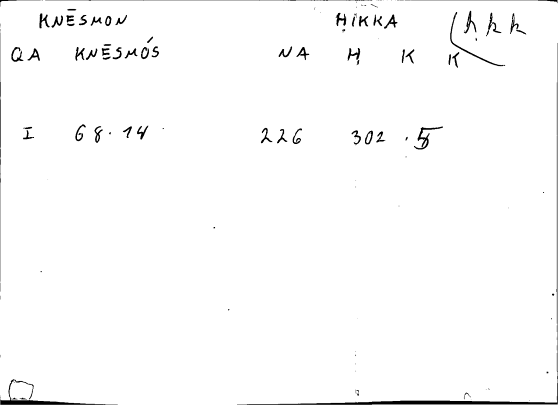 KNĒSMON ḤIKKA (ḥ k k
QA KNĒSMÓS NA Ḥ K K
I 68.14 226 302 .